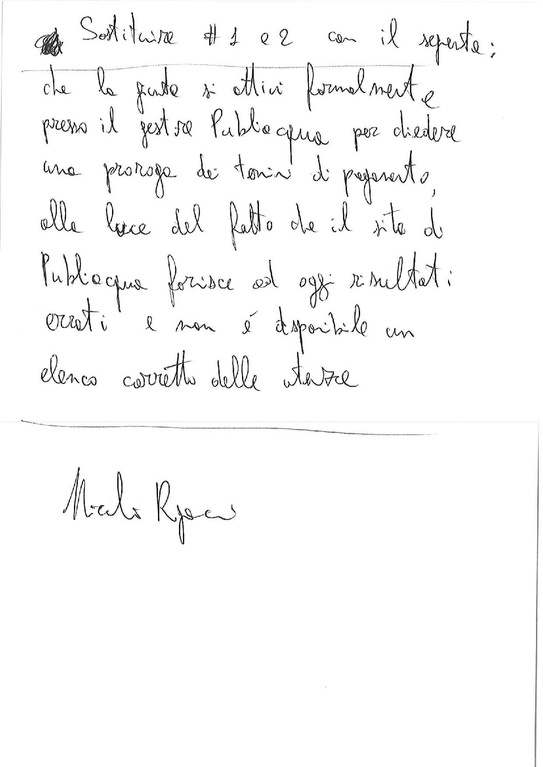 Sostituire # 1 e 2 con il seguente:
che la giunta si attivi formalmente
presso il gestore Publiacqua per chiedere
una proroga dei termini di pagamento,
alla luce del fatto che il sito di
Publiacqua fornisce ad oggi risultati
errati e non é disponibile un
elenco corretto delle utenze